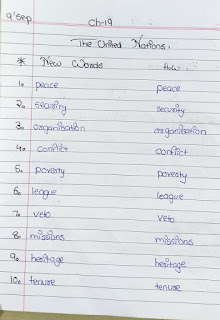 9'Sep Ch-19
The United Nations.
* New Words H.W.
1. peace peace
2. security security
3. organisation organisation
4. conflict conflict
5. poverty poverty
6. league league
7. veto veto
8. missions missions
9. heritage heritage
10. tenure tenure